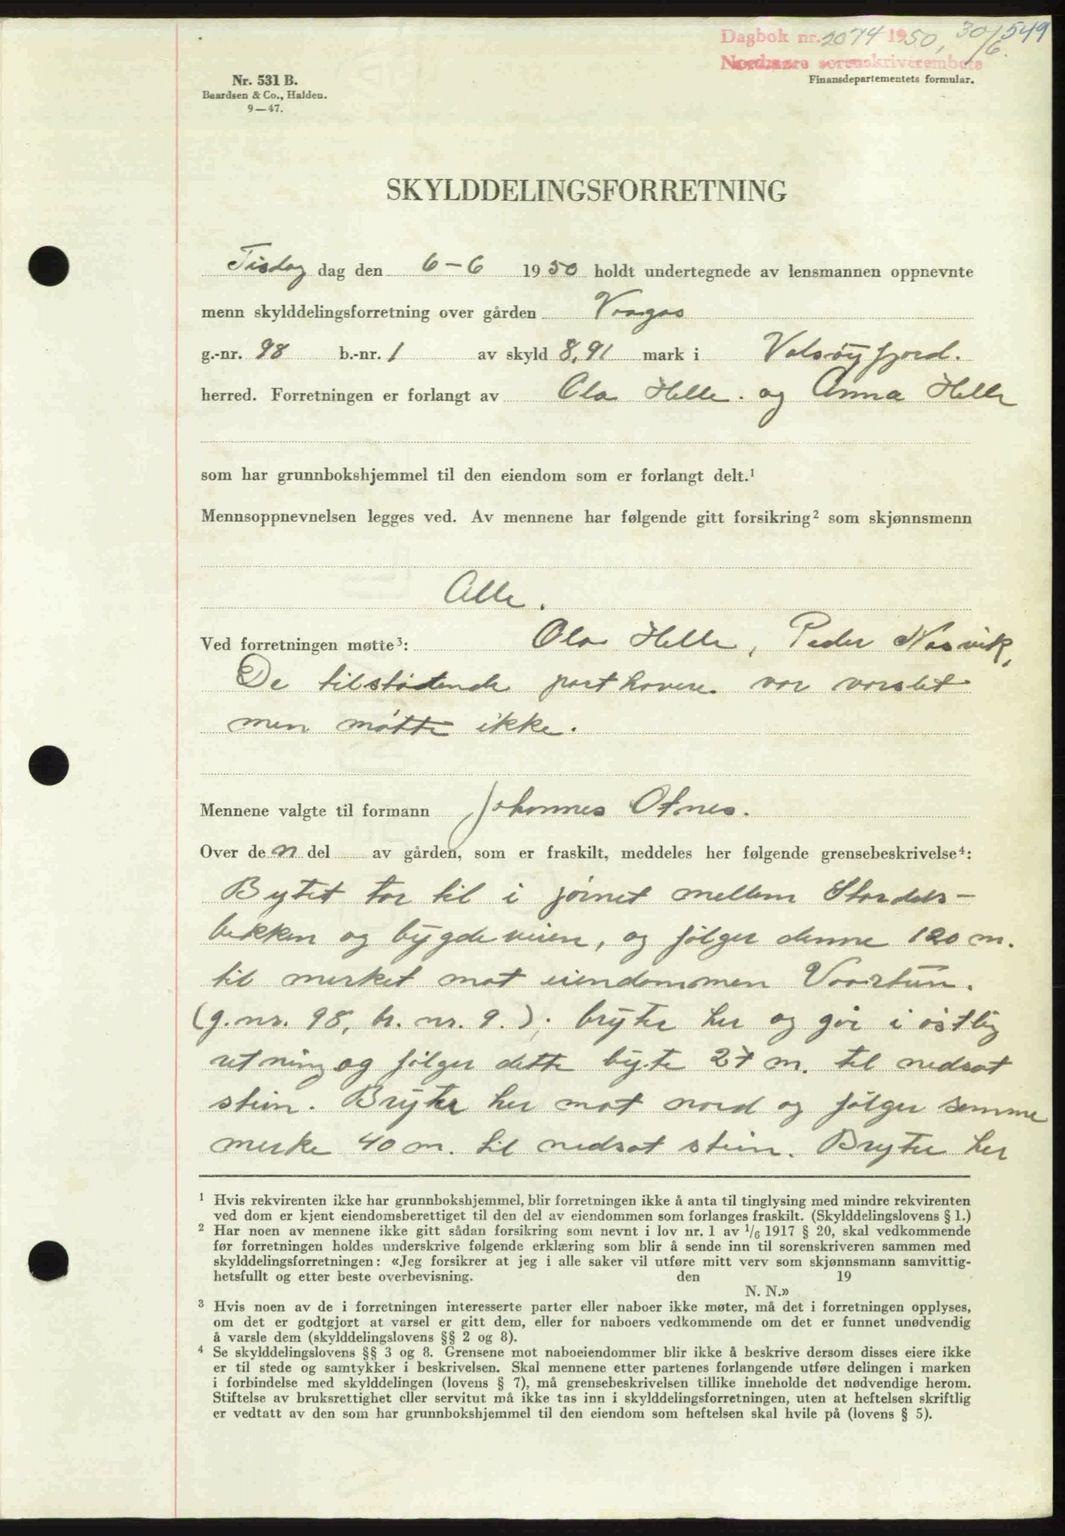 Dagbok nr. 2074 1950, 30/6 549
Nordmøre sorenskriverembete
Nr. 531 B.
Beardsen & Co., Halden.
9—47.
Finansdepartementets formular.
SKYLDDELINGSFORRETNING
Tisdag dag den 6-6 1950 holdt undertegnede av lensmannen oppnevnte
menn skylddelingsforretning over gården
g.-nr. 98 b.-nr. 1 av skyld 8,91 mark i Valsøyfjord.
herred. Forretningen er forlangt av Ola Helle. og Anna Helle
som har grunnbokshjemmel til den eiendom som er forlangt delt.¹
Mennsoppnevnelsen legges ved. Av mennene har følgende gitt forsikring² som skjønnsmenn
Alle.
Ved forretningen møtte³: Ola Helle, Peder Nasvik,
De tilstøtende parthavere var varslet
men møtte ikke.
Mennene valgte til formann Johannes Otnes.
Over den del av gården, som er fraskilt, meddeles her følgende grensebeskrivelse⁴:
Bytet tar til i mellem
bekken og bygdeveien, og følger denne 120 m.
til merket mot eiendommen Vaartun.
(g.nr. 98, br. nr. 9.); bryter her og går i østlig
retning og følger dette byte 27 m. til nedsat
stein. Bryter her mot nord og følger samme
merke 40 m. til nedsat stein. Bryter her
¹ Hvis rekvirenten ikke har grunnbokshjemmel, blir forretningen ikke å anta til tinglysing med mindre rekvirenten
ved dom er kjent eiendomsberettiget til den del av eiendommen som forlanges fraskilt. (Skylddelingslovens § 1.)
² Har noen av mennene ikke gitt sådan forsikring som nevnt i lov nr. 1 av 1/6 1917 § 20, skal vedkommende
før forretningen holdes underskrive følgende erklæring som blir å sende inn til sorenskriveren sammen med
skylddelingsforretningen: «Jeg forsikrer at jeg i alle saker vil utføre mitt verv som skjønnsmann samvittig-
hetsfullt og etter beste overbevisning. den 19
N. N.»
³ Hvis noen av de i forretningen interesserte parter eller naboer ikke møter, må det i forretningen opplyses,
om det er godtgjort at varsel er gitt dem, eller for naboers vedkommende om det er funnet unødvendig
å varsle dem (skylddelingslovens §§ 2 og 8).
⁴ Se skylddelingslovens §§ 3 og 8. Grensene mot naboeiendommer blir ikke å beskrive dersom disses eiere ikke
er til stede og samtykker i beskrivelsen. Skal mennene etter partenes forlangende utføre delingen i marken
i forbindelse med skylddelingen (lovens § 7), må grensebeskrivelsen tillike inneholde det nødvendige herom.
Stiftelse av bruksrettighet eller servitut må ikke tas inn i skylddelingsforretningen, uten at heftelsen skriftlig
er vedtatt av den som har grunnbokshjemmel til den eiendom som heftelsen skal hvile på (lovens § 5).